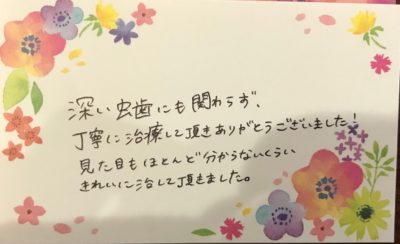 深い虫歯にも関わらず、
丁寧に治療して頂きありがとうございました!
見た目もほとんど分からないくらい
きれいに治して頂きました。